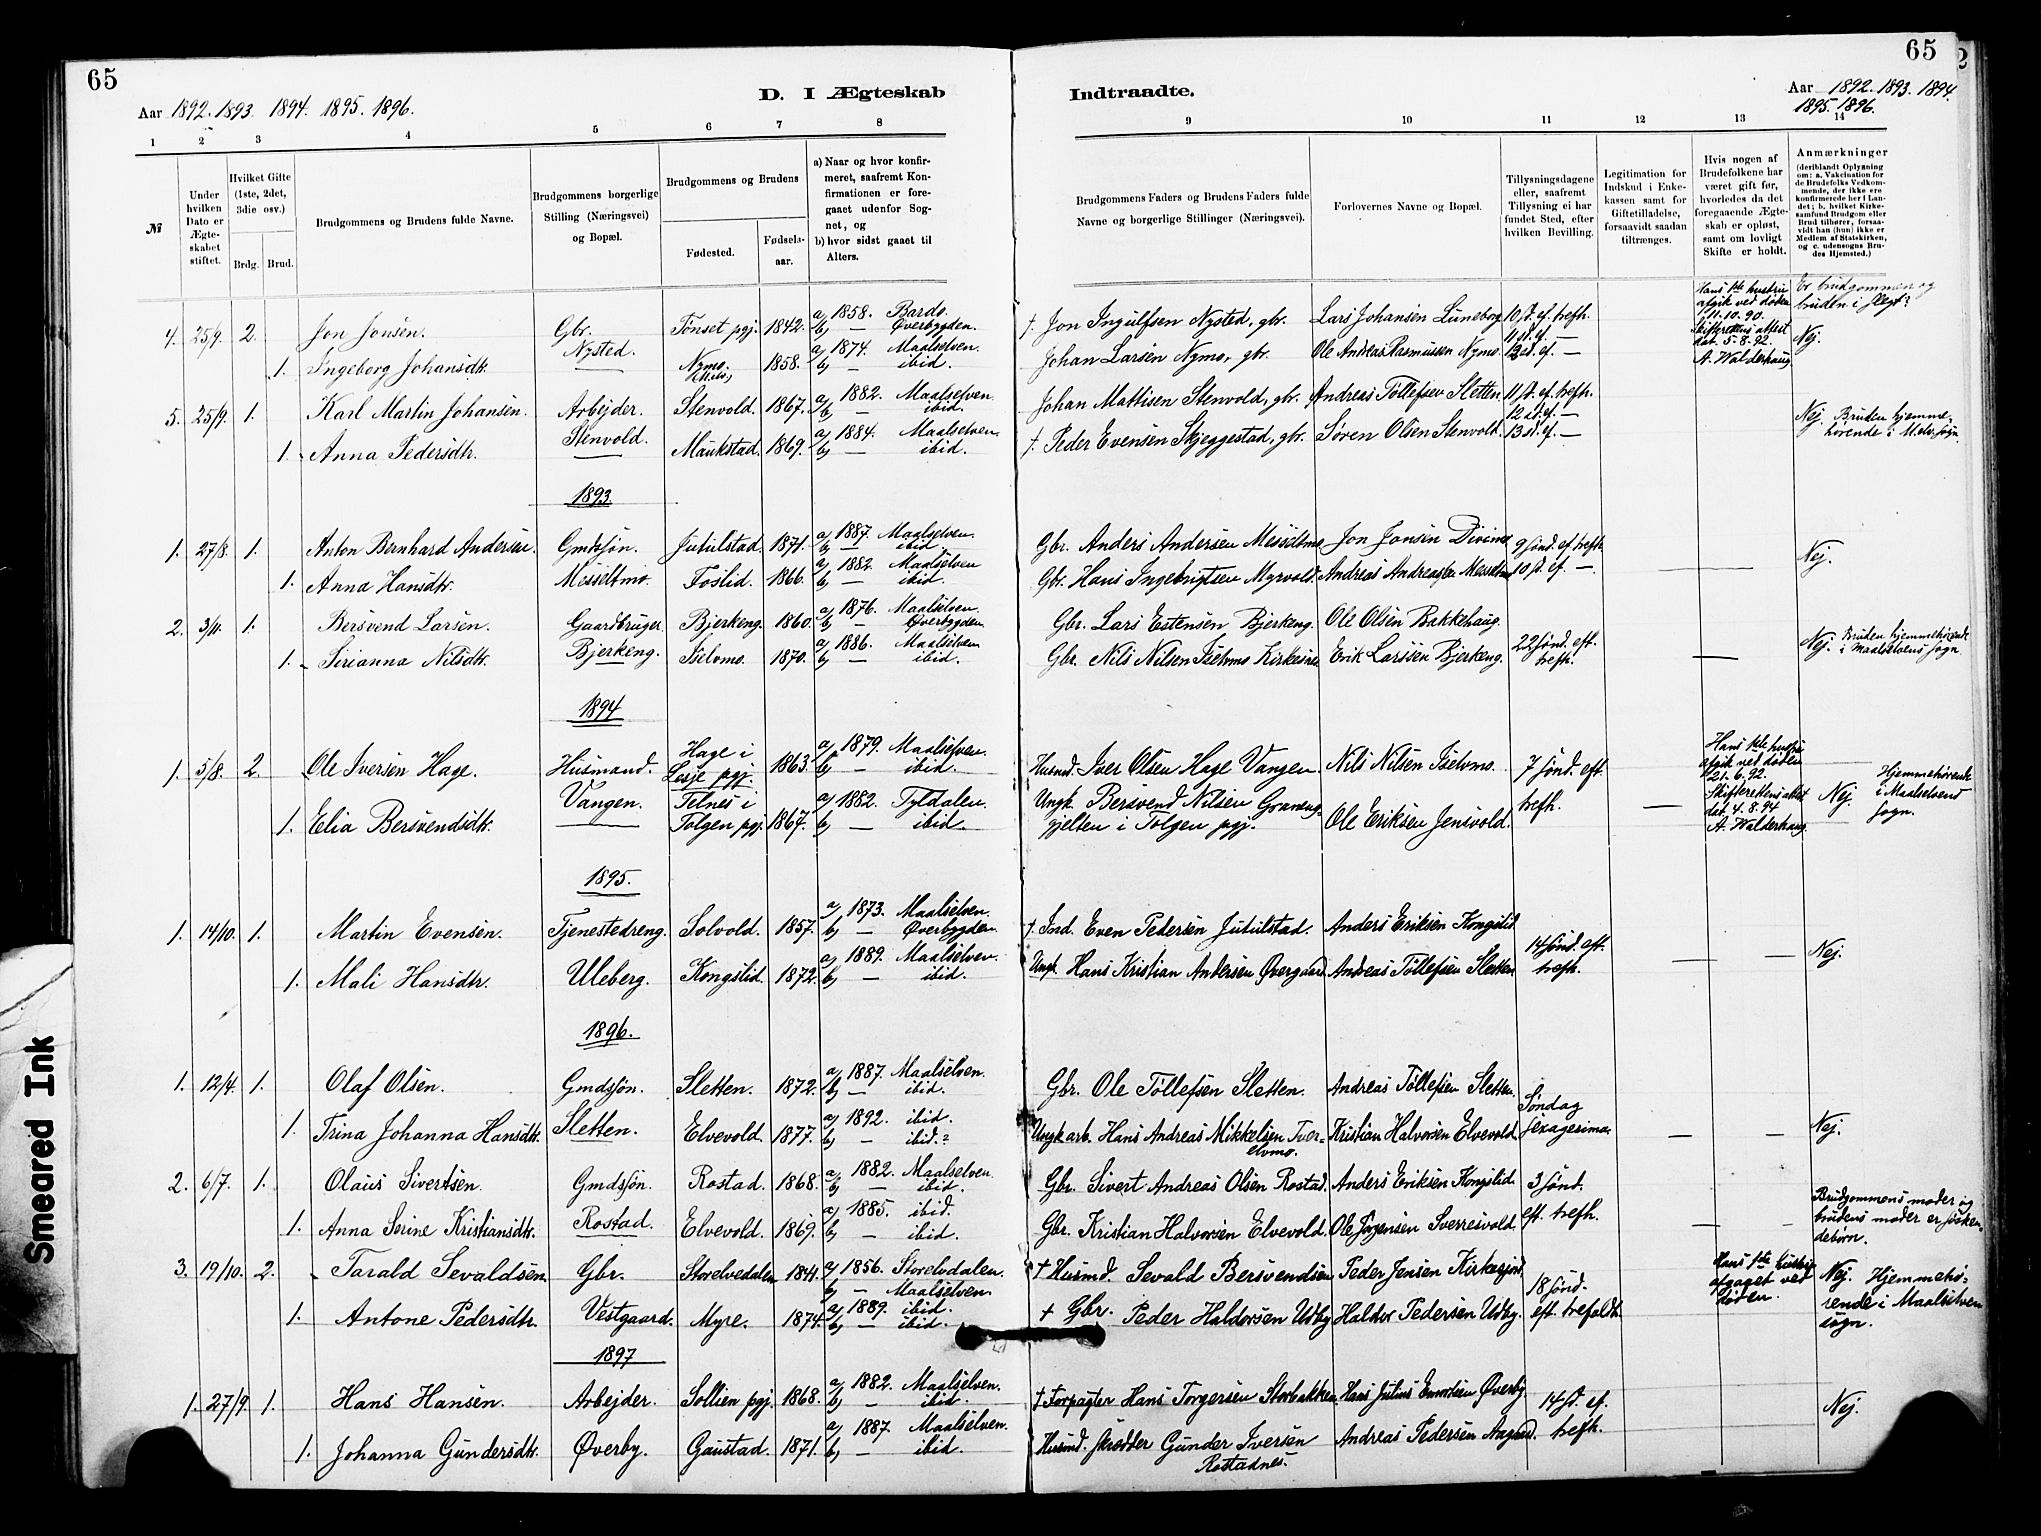 65
Aar 1892. 1893. 1894. 1895. 1896.
D. I Ægteskab
1 2 3 4 5 6 7 8
№
Under hvilken Dato er Ægteskabet stiftet.
Hvilket Gifte (1ste, 2det, 3die osv.)
Brdg. Brud.
Brudgommens og Brudens fulde Navne.
Brudgommens borgerlige Stilling (Næringsvei) og Bopæl.
Brudgommens og Brudens
Fødested. Fødselsaar.
a) Naar og hvor konfirmeret, saafremt Konfirmationen er foregaaet udenfor Sognet, og
b) hvor sidst gaaet til Alters.
4. 25/9. 2. Jon Jonsen. Gbr. Tønset pgj. 1842. a) 1858. Bardo. b) — Øverbygden.
Nysted.
1. Ingeborg Johansdtr. — Nymo. 1858. a) 1874. Maalselven. b) — ibid.
5. 25/9. 1. Karl Martin Johansen. Arbejder. Stenvold. 1867. a) 1882. Maalselven. b) — ibid.
Stenvold.
1. Anna Pedersdtr. — Maukstad. 1869. a) 1884. Maalselven. b) — ibid.
1893.
1. 27/8. 1. Anton Bernhard Andersen. Gmdsøn. Jutulstad. 1871. a) 1887. Maalselven. b) — ibid.
1. Anna Hansdtr. Messeltmo. Foslid. 1866. a) 1882. Maalselven b) — ibid.
2. 3/11. 1. Bersvend Larsen. Gaardbruger. Bjerkeng. 1860. a) 1876. Maalselven. b) — Øverbygden.
1. Sirianna Nilsdtr. Bjerkeng. Iselvmo. 1870. a) 1886. Maalselven b) — ibid.
1894
1. 5/8. 2. Ole Iversen Hage. Husmand. Hage i Lesje pgj. 1863. a) 1879. Maalselven. b) — ibid.
Vangen.
1. Elia Bersvendsdtr. — Telnes i Tolgen pgj. 1867. a) 1882. Tyldalen. b) — ibid.
1895.
1. 14/10. 1. Martin Evensen. Tjenestedreng. Solvold. 1857. a) 1873. Maalselven. b) — Øverbygden.
1. Mali Hansdtr. Uleberg. Kongslid. 1872. a) 1889. Maalselven. b) — ibid.
1896.
1. 12/4. 1. Olaf Olsen. Gmdsøn. Sletten. 1872. a) 1887. Maalselven. b) — ibid.
1. Trina Johanna Hansdtr. Sletten. Elvevold. 1877. a) 1892. ibid. b) — ibid.?
2. 6/7. 1. Olaus Sivertsen. Gmdsøn. Rostad. 1868. a) 1882. Maalselven. b) — ibid.
1. Anna Serine Kristiansdtr. Rostad. Elvevold. 1869. a) 1885. ibid. b) — ibid.
3. 19/10. 2. Tarald Sevaldsen. Gbr. Storelvedalen 1841. a) 1856. Storelvdalen. b) — Maalselven.
1. Antone Pedersdtr. Vestgaard. Myre. 1874. a) 1889. ibid. b) — ibid.
1897
1. 27/9. 1. Hans Hansen. Arbejder. Sollien pgj. 1868. a) 1882. Maalselven. b) — ibid.
1. Johanna Gundersdtr. Øverby. Gaustad. 1871. a) 1887. Maalselven. b) — ibid.
65
Indtraadte.
Aar 1892. 1893. 1894. 1895. 1896.
9 10 11 12 13 14
Brudgommens Faders og Brudens Faders fulde Navne og borgerlige Stillinger (Næringsvei).
Forlovernes Navne og Bopæl.
Tillysningsdagene eller, saafremt Tillysning ei har fundet Sted, efter hvilken Bevilling.
Legitimation for Indskud i Enkekassen samt for Giftetilladelse, forsaavidt saadan tiltrænges.
Hvis nogen af Brudefolkene har været gift før, hvorledes da det foregaaende Ægteskab er opløst, samt om lovligt Skifte er holdt.
Anmærkninger
(deriblandt Oplysning om: a. Vakcination for de Brudefolks Vedkommende, der ikke ere konfirmerede her i Landet; b. hvilket Kirkesamfund Brudgom eller Brud tilhører, forsaavidt han (hun) ikke er Medlem af Statskirken, og c. udensogns Brudes Hjemsted.)
† Jon Ingulfsen Nysted, gbr. Lars Johansen Luneborg 10 s. ef. trefh. Hans 1ste hustru afgik ved døden 11.10.90. Skifterettens attest dat. 5.8.92. A. Walderhaug. Er brudgommen og bruden i slegt?
Johan Larsen Nymo, gbr. Ole Andreas Rasmussen Nymo. 11 s. ef. — 12 s. ef. — Nej.
Johan Mattisen Stenvold, gbr. Andreas Tollefsen Sletten. 11 s. ef. trefh. 12 s. ef. —
† Peder Evensen Skjeggestad, gbr. Søren Olsen Stenvold. 13 s. ef. — Nej. Bruden hjemmehørende i M.elv. sogn.
Gbr. Anders Andersen Messeltmo Jon Jonsen Divimo 9 sønd. ef. trefh. Nej.
Gbr. Hans Ingebrigtsen Myrvold. Andreas Andreassen Messeltmo 10 s. ef. —. — —
Gbr. Lars Estensen Bjerkeng. Ole Olsen Bakkehaug.
Gbr. Nils Nilsen Iselvmo Kirkesnes Erik Larssen Bjerkeng. 22 sønd. eft. trefh. — — Nej. Bruden hjemmehørende i Maalselvens sogn.
Husmd. Iver Olsen Hage Vangen. Nils Nilsen Iselvmo. 7 sønd. eft. trefh. — Hans 1ste hustru afgik ved døden 21.6.92. Skifterettens attest dat. 4.8.94 A. Walderhaug. Nej. Hjemmehørende i Maalselvens sogn.
Ungk. Bersvend Nilsen i Tolgen pgj. Ole Eriksen Jensvold.
† Ind. Even Pedersen Jutulstad. Anders Eriksen Kongslid. 14 sønd. eft. trefh. — — Nej.
Ungk. Hans Kristian Andersen Øvergaard. Andreas Tollefsen Sletten
Gbr. Ole Tollefsen Sletten. Andreas Tollefsen Sletten. Søndag sexagesima — — Nej.
Ungk. arb. Hans Andreas Mikkelsen Tverelvmo. Kristian Halvorsen Elvevold.
Gbr. Sivert Andreas Olsen Rostad. Anders Eriksen Kongslid. 3 sønd. eft. trefh. — — Brudgommens moder og brudens moder er søskendebørn.
Gbr. Kristian Halvorsen Elvevold. Ole Jørgensen Sverresvold.
† Husmd. Sevald Bersvendsen Peder Jensen Kirkesjord. 18 sønd. eft. trefoldh. Hans 1ste hustru afgaaet ved døden. Nej. Hjemmehørende i Maalselven sogn.
† Gbr. Peder Haldorsen Udby Haldor Pedersen Udby.
† Forpagter Hans Torgersen Storbakken. Hans Julius Øverby 14 s. ef. trefh. Nej.
Husmd. skrædder Gunder Iversen Rostadnes. Andreas Pedersen
Smeared Ink